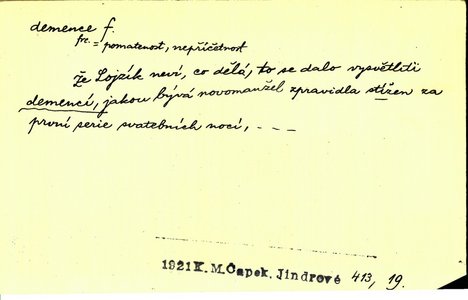 demence f.
frc. = pomatenost, nepříčetnost
Že Lojzík neví, co dělá, to se dalo vysvětliti
demencí, jakou bývá novomanžel zpravidla stížen za
první serie svatebních nocí, – – –
1921 K. M. Čapek, Jindrové 413, 19.